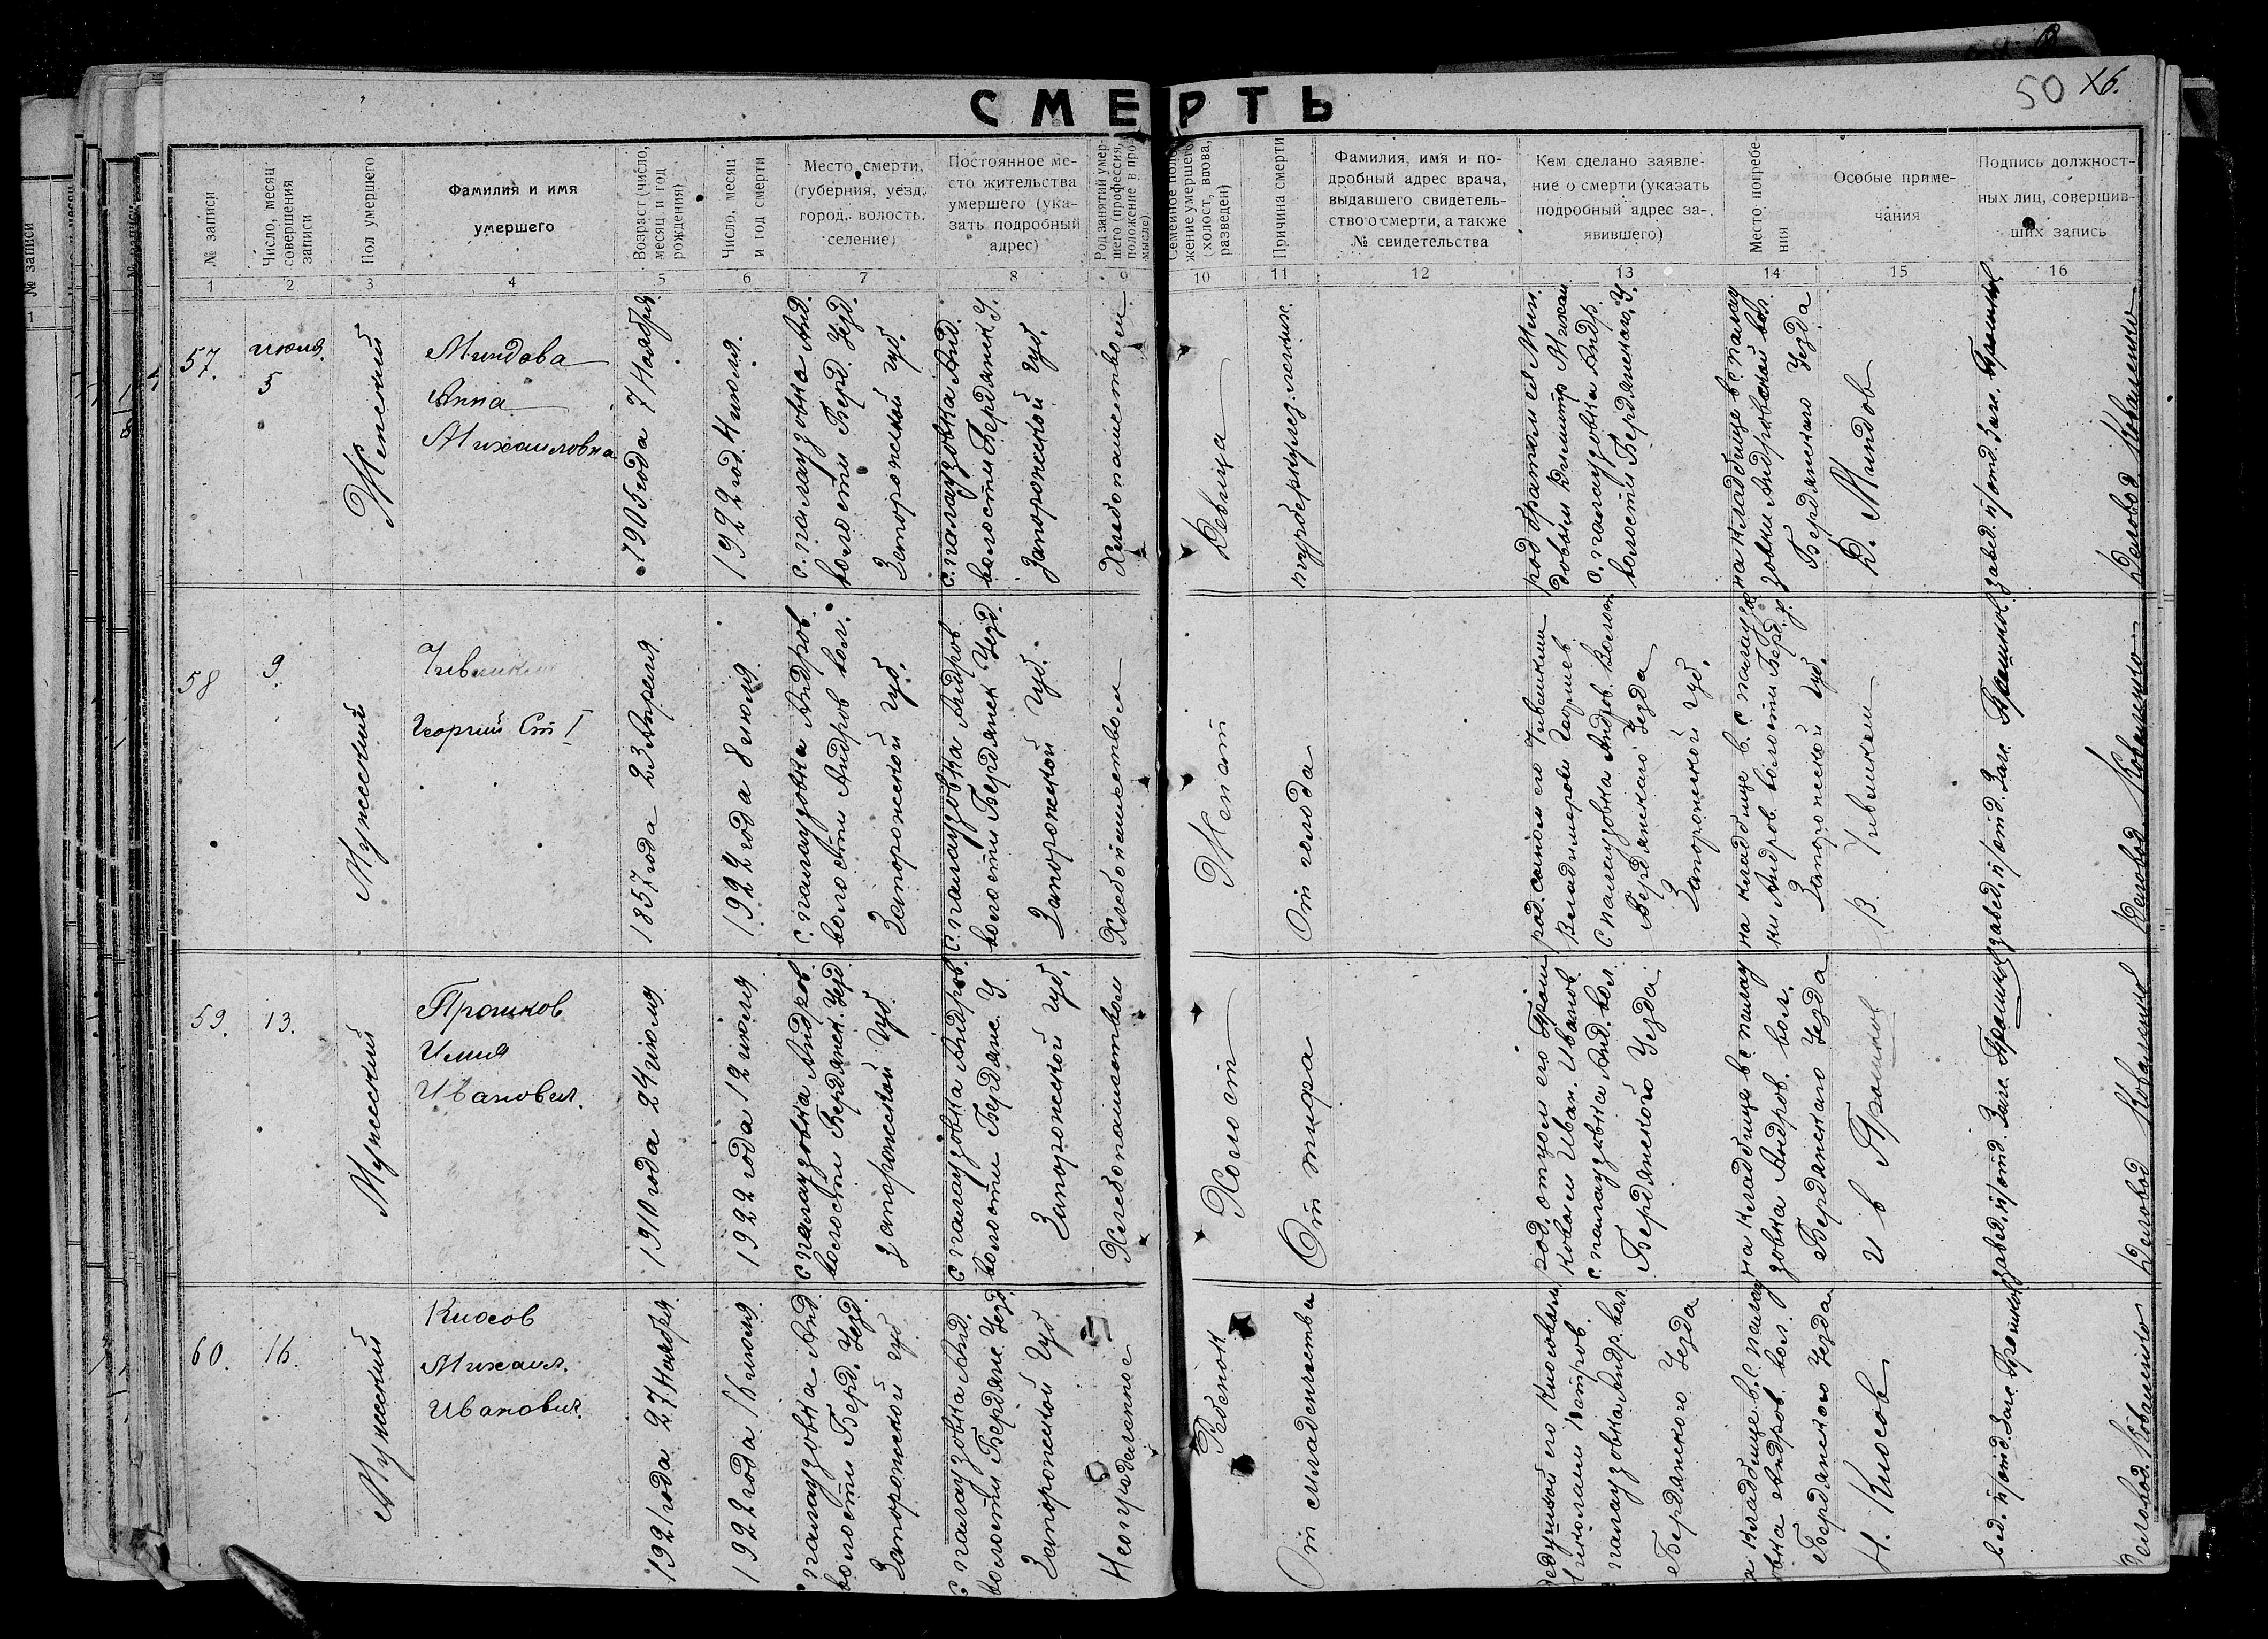 СМЕРТЬ
50 16.
№ записи
Число, месяц совершения записи
Пол умершего
Фамилия и имя
умершего
Возраст (число, месяц и год рождения)
Число, месяц и год смерти
Место смерти,
(губерния, уезд,
город, волость,
селение)
Постоянное ме-
сто жительства
умершего (ука-
зать подробный
адрес)
Род занятий умер-
шего (профессия,
положение в про-
мысле).
Семейное поло-
жение умершего
(холост, вдова,
разведен)
Причина смерти
Фамилия, имя и по-
дробный адрес врача,
выдавшего свидетель-
ство о смерти, а также
№ свидетельства
Кем сделано заявле-
ние о смерти (указать
подробный адрес за-
явившего)
Место погребе-
ния
Особые приме-
чания
Подпись должност-
ных лиц, совершив-
ших запись
1 2 3 4 5 6 7 8 9 10 11 12 13 14 15 16
57.
июля
5
Женский
Миндова
Анна
Михаиловна
1905 года 7 Ноября
1922 год. 4 июля.
с. палаузовка Анд.
волости Берд. Уезд.
Запорожской губ.
с. палаузовка Анд.
волости Бердянск. У.
Запорожской губ.
Хлебопашеством
Девица
род братом её Мин
довым Димитр Михаи
с. палаузовка Андр.
волости Бердянскаго У.
на кладбище в с палау
зовки Андровской вол.
Бердянскаго Уезда
Д. Миндов
завед. п/отд. Загс.
Деловод Коваленко
58
9.
Мужеский
Георгий Ст I
1857 года 23 Апреля
1922 года 8 июля
с. палаузовка Андров
волости Андров вол.
Запорожской губ.
с. палаузовка Андров
волости Бердянск Уезд.
Запорожской губ.
Хлебопашеством
Женат
От голода
род. сыном его
Владимером Георгиев
с палаузовка Андров. Волост
Бердянскаго Уезда
Запорожской губ.
на кладбище в. с палаузов
ки Андров. волости Берд. у.
Запорожской губ.
завед. п/отд. Загс.
Деловод Коваленко
59.
13.
Мужеский
Прошков
Илия
Иванович.
1910 года 24 июля
1922 года 12 июля
с палаузовка Андров
волости Бердянск. Уезд.
Запорожской губ.
с палаузовка Андров.
волости Бердянс. У.
Запорожской губ.
Хлебопашеством
Холост
От тифа
род. отцом его Прош
ковым Иван. Иванов
с. палаузовка Анд. вол.
Бердянского Уезда
на кладбище в с палау
зовка Андров. вол.
Бердянскаго Уезда
И в Прошков
завед. п/отд. Загс. Прошков
Деловод Коваленко
60.
16.
Мужеский
Киосов
Михаил.
Иванович.
1921 года 27 Ноября
1922 года 16 июля
с палаузовка Анд.
волости Берд. Уезд.
Запорожской губ
с. палаузовка Анд.
волости Бердянс. Уезд
Запорожской губ
Неопределенное
Ребенок
От младенчества
дедушкой его Киосовым
Николаем Петров.
палаузовка Андр. вол
Бердянского Уезда
а кладбище в. с. палау
овка Андров. вол.
Бердянскаго Уезда
Н. Киосов
вед. п/отд. Загс. Прошков
Деловод. Коваленко